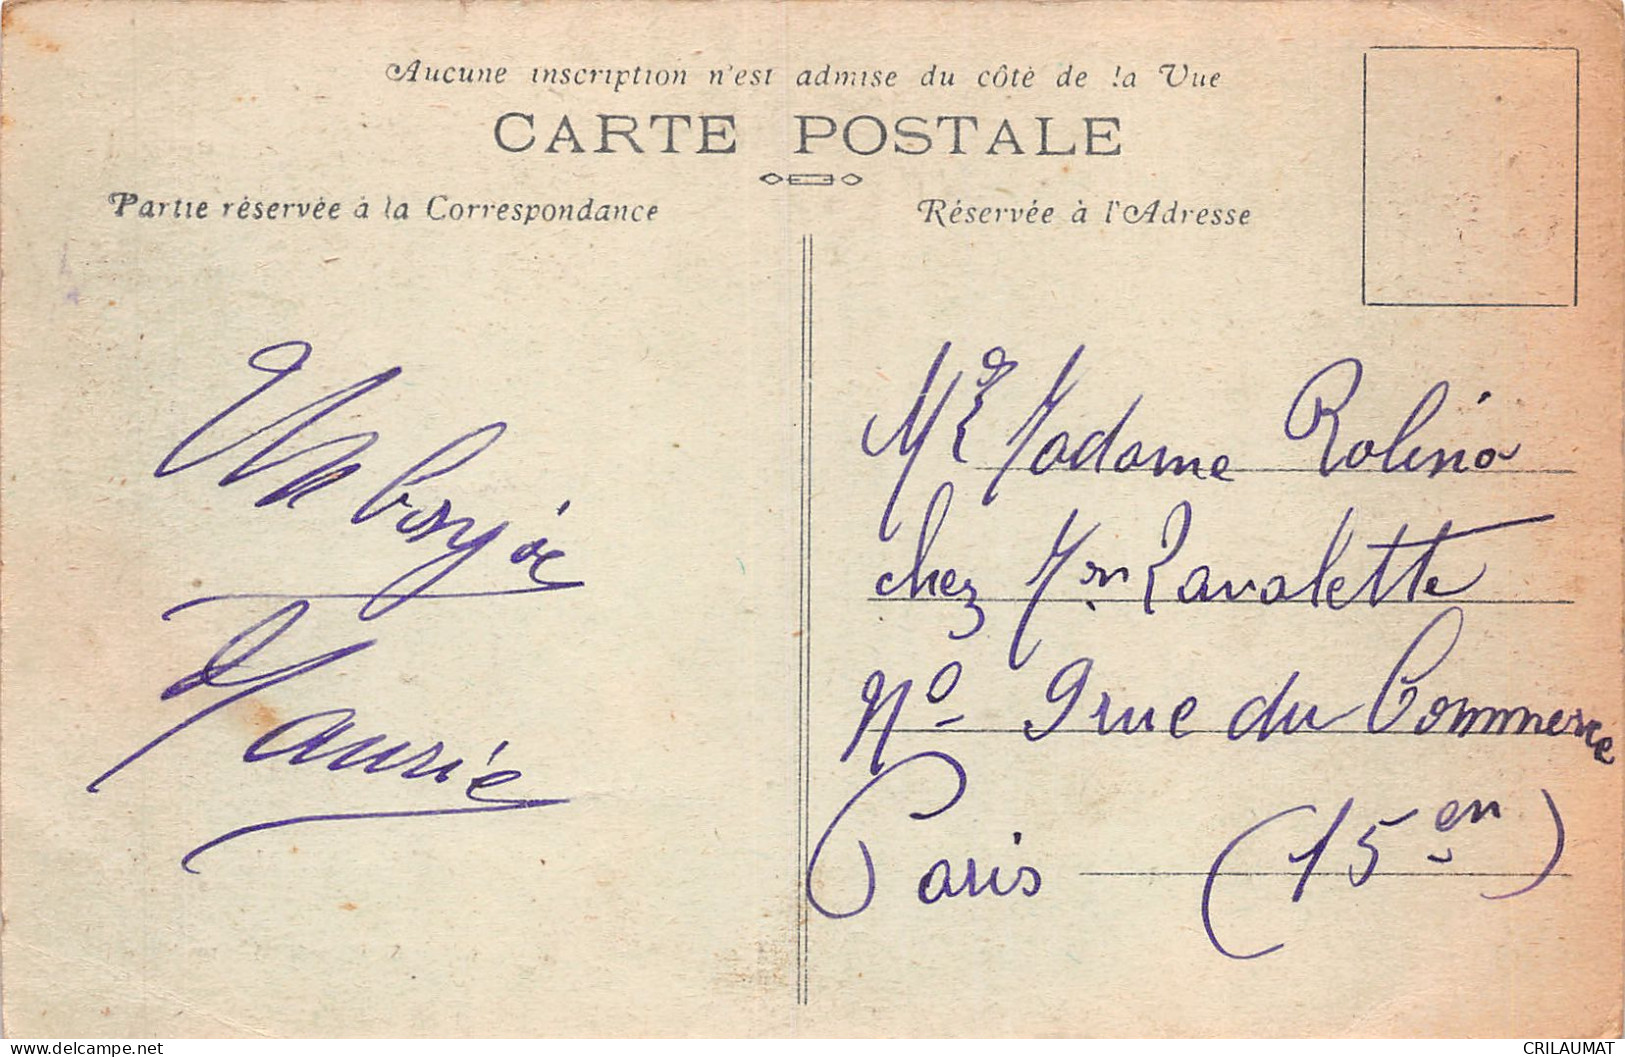 Aucune inscription n'est admise du côté de la Vue
CARTE POSTALE
Partie réservée à la Correspondance
Réservée à l'Adresse
Un
Maurie
Mr & Madame Rolino
chez Mr Lavalette
No 9 rue du Commerce
Paris (15en)
CRILAUMAT